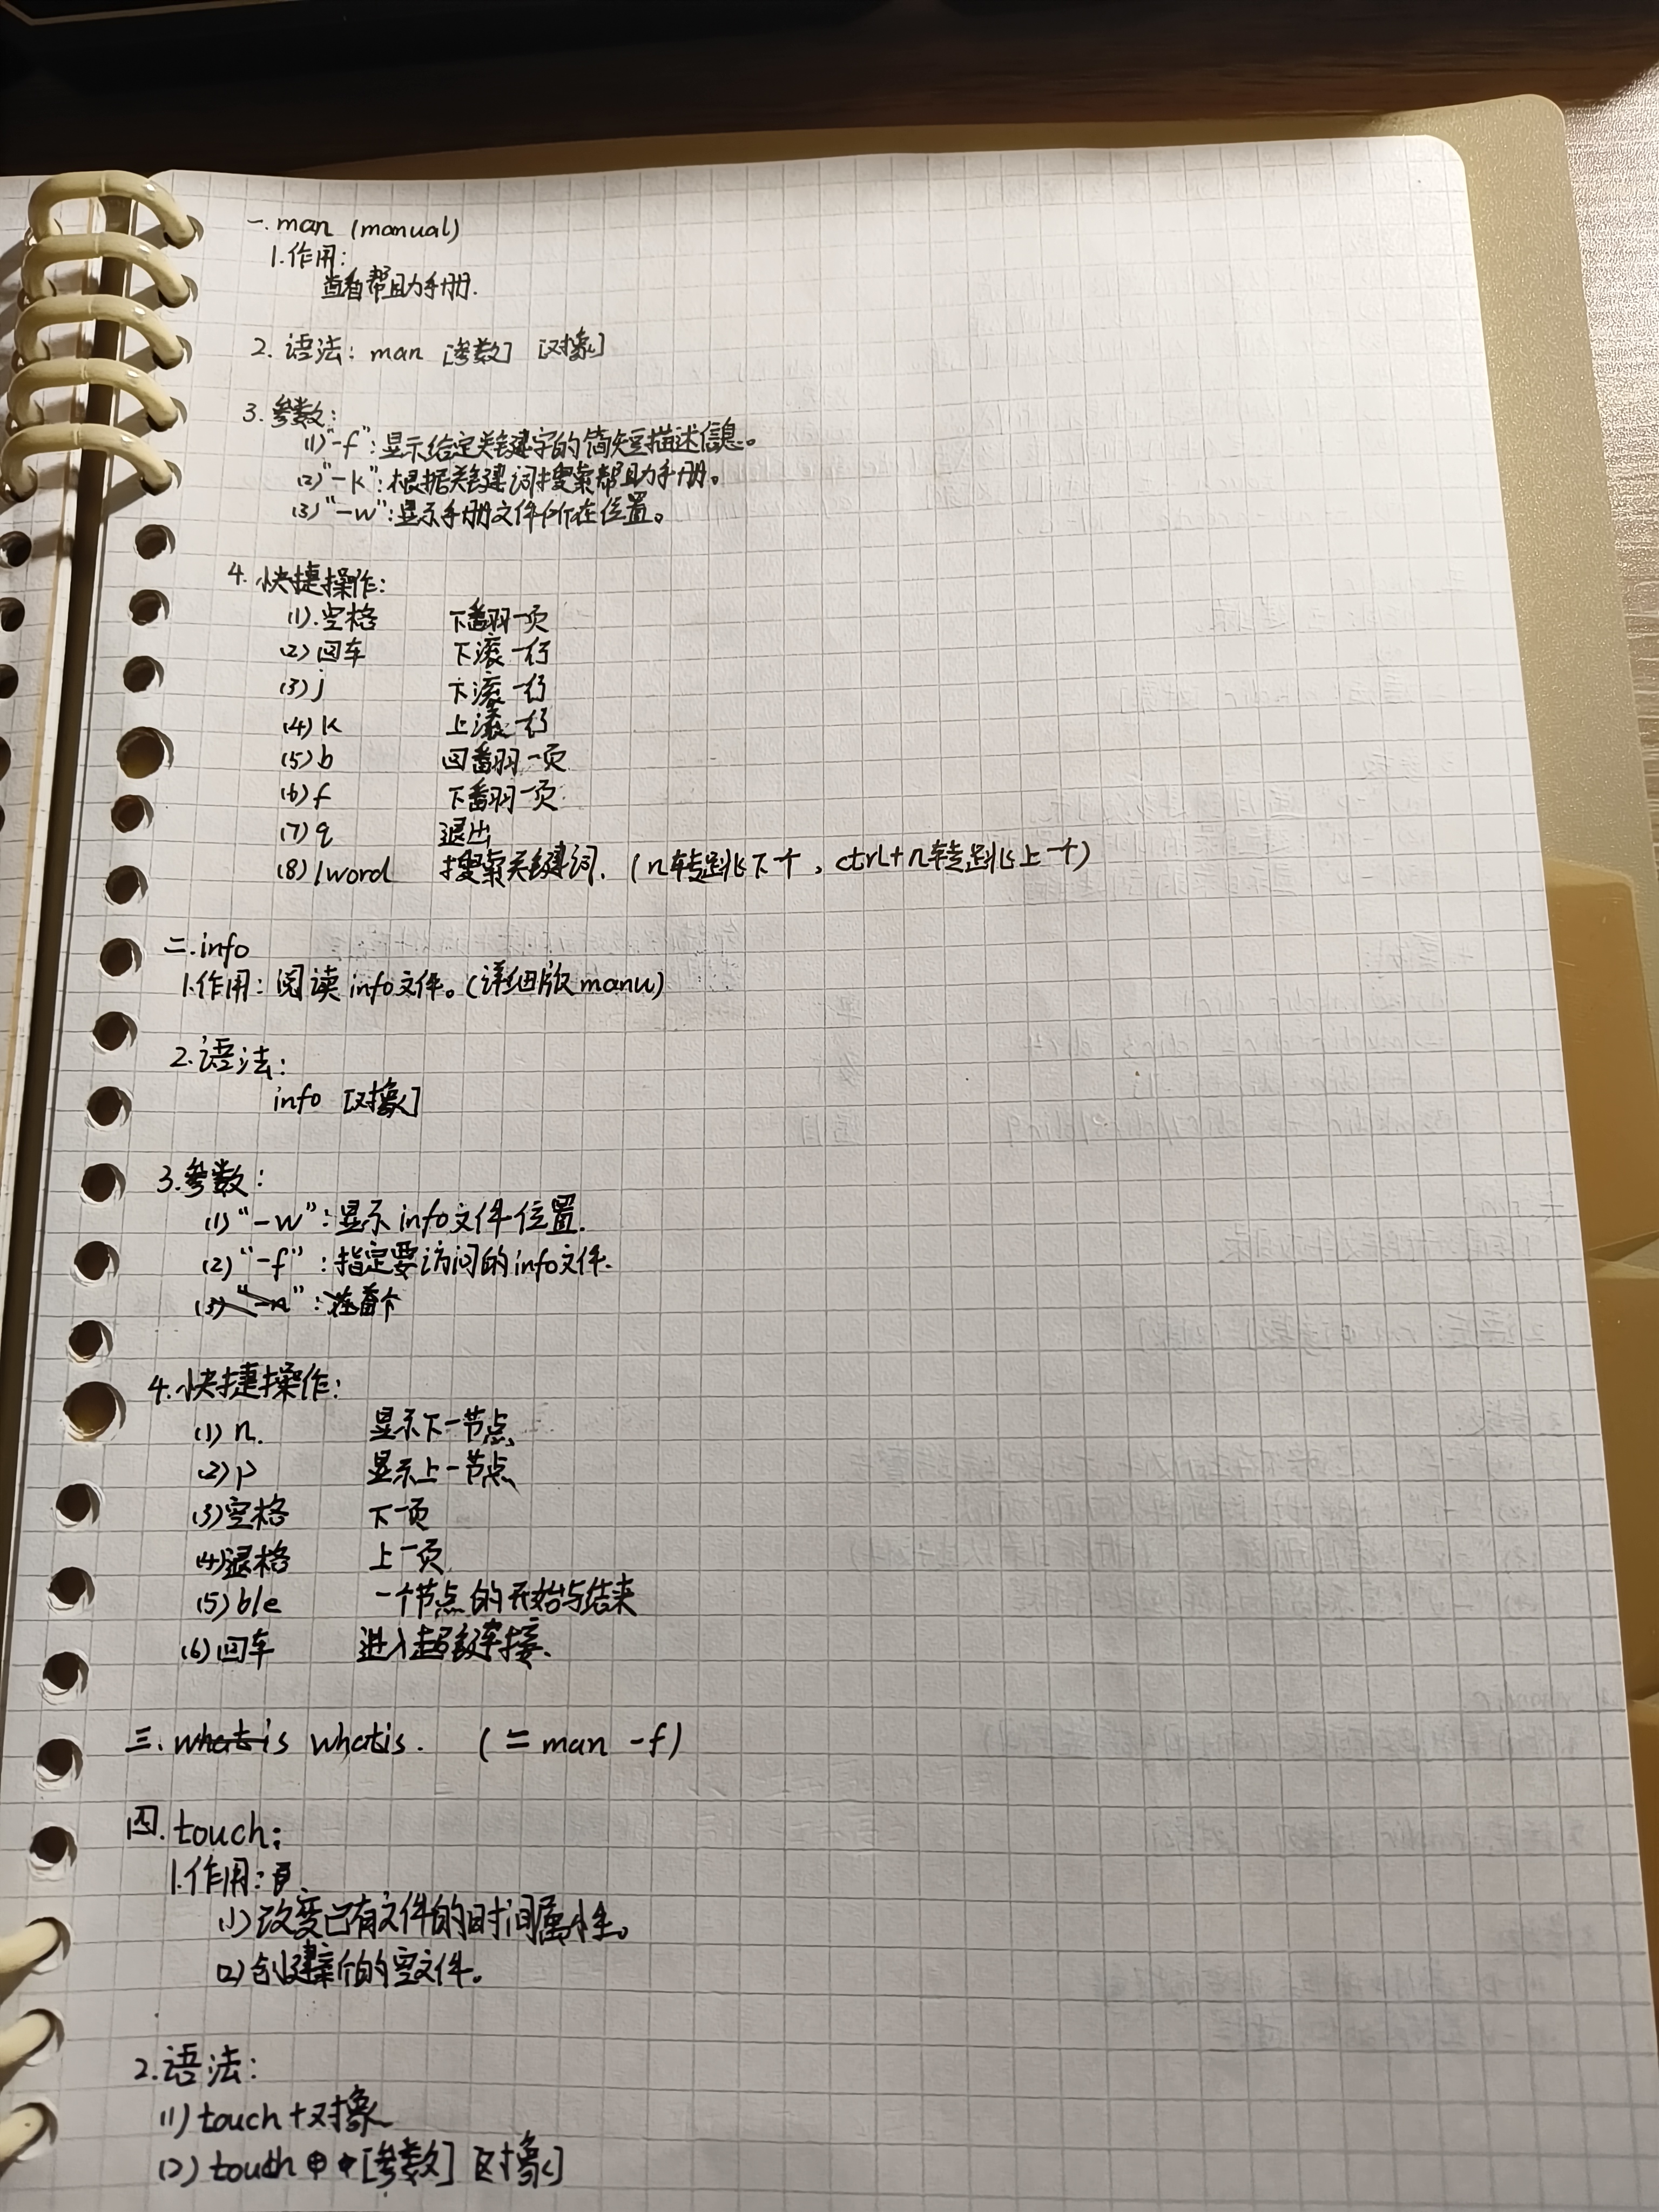 一. man (manual)
1.作用:
查看帮助手册.
2. 语法: man [参数] [对象]
3. 参数:
(1)"-f":显示给定关键字的简短描述信息。
(2)"-k":根据关键词搜索帮助手册。
(3)"-w":显示手册文件所在位置。
4. 快捷操作:
(1).空格 下翻一页
(2)回车 下滚一行
(3)j 下滚一行
(4)k 上滚一行
(5)b 回翻一页
(6)f 下翻一页
(7)q 退出
(8)/word 搜索关键词. (n转跳下一个, ctrl+n转跳上一个)
二.info
1.作用: 阅读info文件。(详细版manu)
2.语法:
info [对象]
3.参数:
(1)"-w":显示info文件位置.
(2)"-f":指定要访问的info文件.
(3)"-n":
4.快捷操作:
(1) n. 显示下一节点
(2) p 显示上一节点
(3)空格 下一页
(4)退格 上一页
(5) b/e 一个节点的开始与结束
(6)回车 进入超链接.
三. what is whatis. (= man -f)
四. touch:
1.作用:
(1)改变已有文件的时间属性。
(2)创建新的空文件。
2.语法:
(1) touch+对象
(2) touch [参数] [对象]